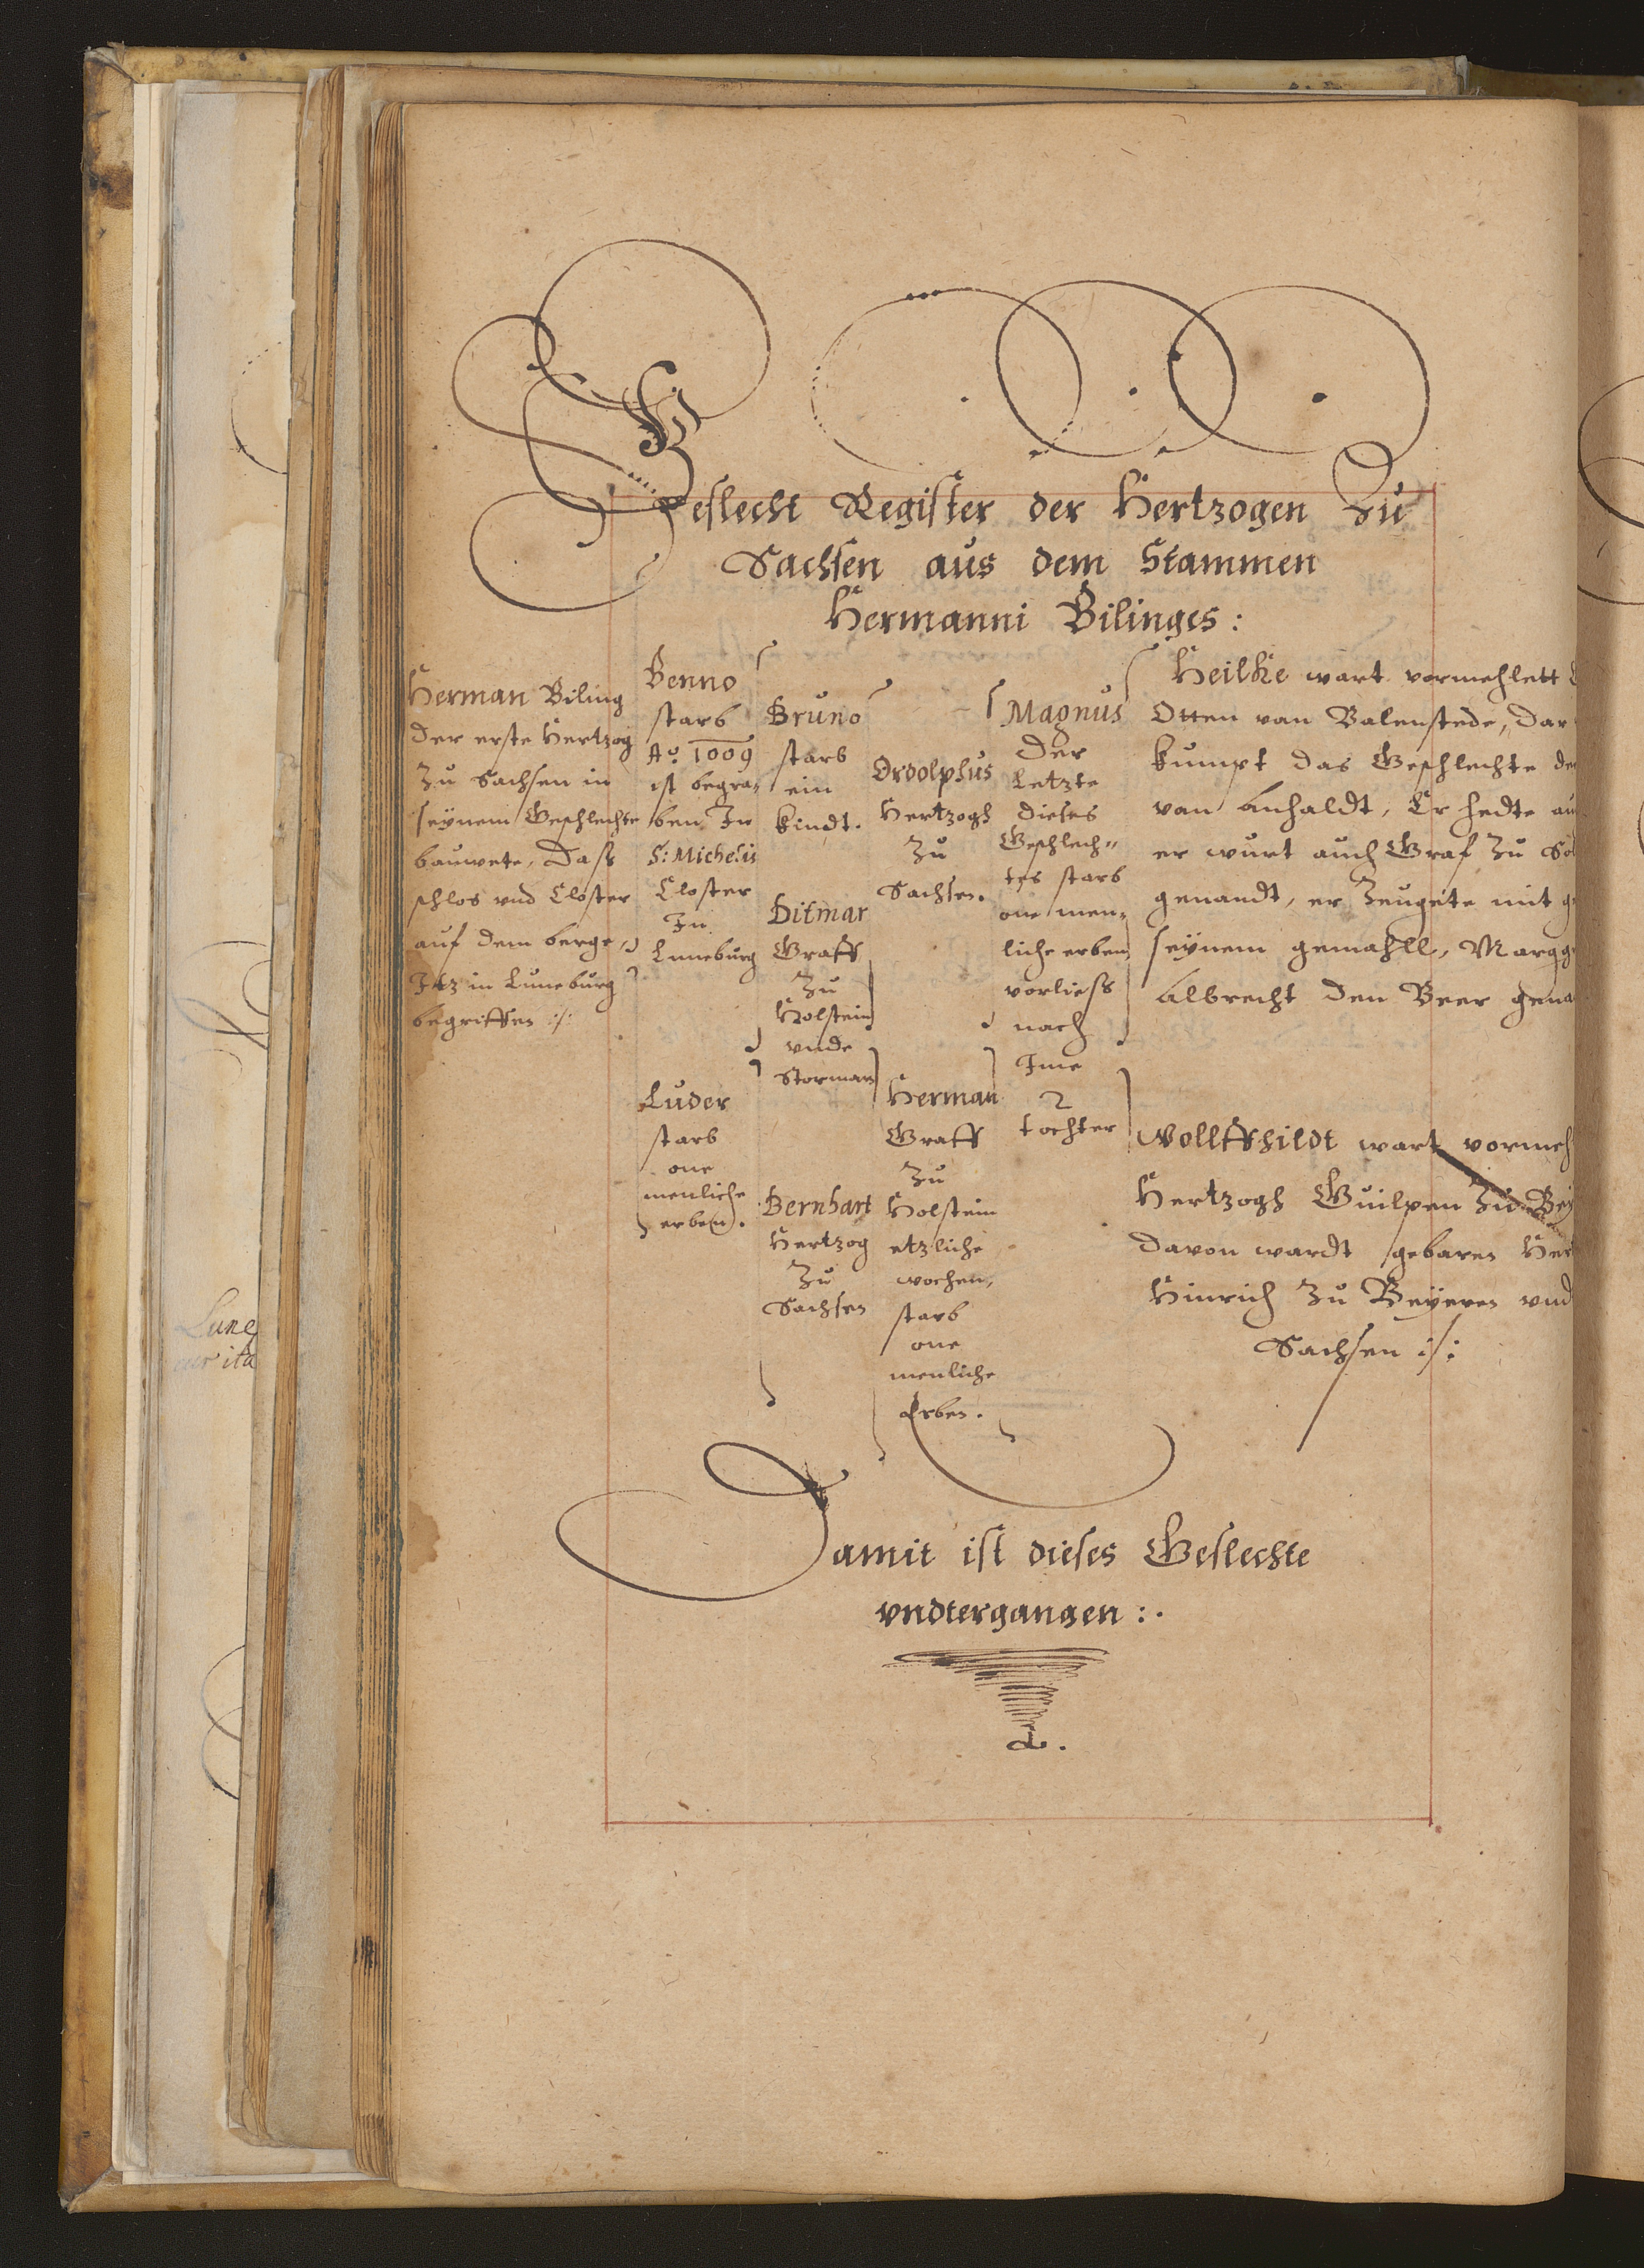 Geslecht Register der Hertzogen Zu
Sachsen aus dem Stammen
Hermanni Bilinges:
Herman Biling
der erste Hertzog
Zu Sachsen in
seynem Geschlechte
bauwete, dass
schlos vnd Closter
auf dem berge,
Itz in Luneburg
begriffen :/:
Benno
starb
Ao. 1009
ist begra-
ben In
S: Michelis
Closter
In
Luneburg
Luder
starb
one
menliche
erben.
Bruno
starb
ein
kindt.
Ditmar
Graff
Zu
Holstein
vnde
Storman
Bernhart
Hertzog
Zu
Sachsen
Ordolphus
Hertzogh
Zu
Sachsen.
Herman
Graff
Zu
Holstein
etzliche
wochen,
starb
one
menliche
Erben.
Magnus
Der
Letzte
dieses
Geschlech"
tes starb
one men-
liche erben
vorliess
nach
Ime
2
tochter
Heilke wart vormehlett
Otten van Balenstede, dar
kumpt das Geschlechte
van Anhaldt, Er hedte
er wurt auch Graf Zu
genandt, er Zeugete mit
seynem gemahll, Margg
Albrecht den Beer gena
Wollffhildt wart vormeh
Hertzogh Guilpen Zu Bey
davon wardt gebaren Her
Hinrich Zu Beyeren vnd
Sachsen :/:
Damit ist dieses Geslechte
vndtergangen :.
Lune
ita